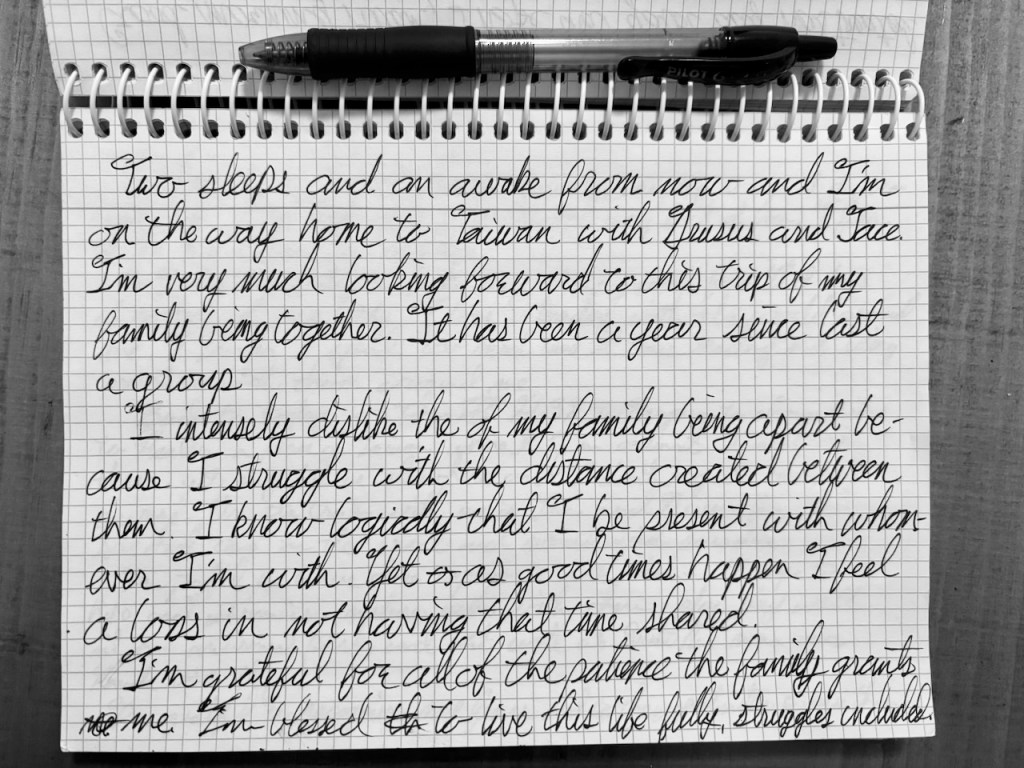 PILOT G
Two sleeps and an awake from now and I'm
on the way home to Taiwan with and Jace.
I'm very much looking forward to this trip of my
family being together. It has been a year since last
a group
I intensely dislike the of my family being apart be-
cause I struggle with the distance created between
them. I know logically that I be present with whom-
ever I'm with. Yet as good times happen I feel
a loss in not having that time shared.
I'm grateful for all of the patience the family grants
me. I'm blessed to live this life fully, struggles included.